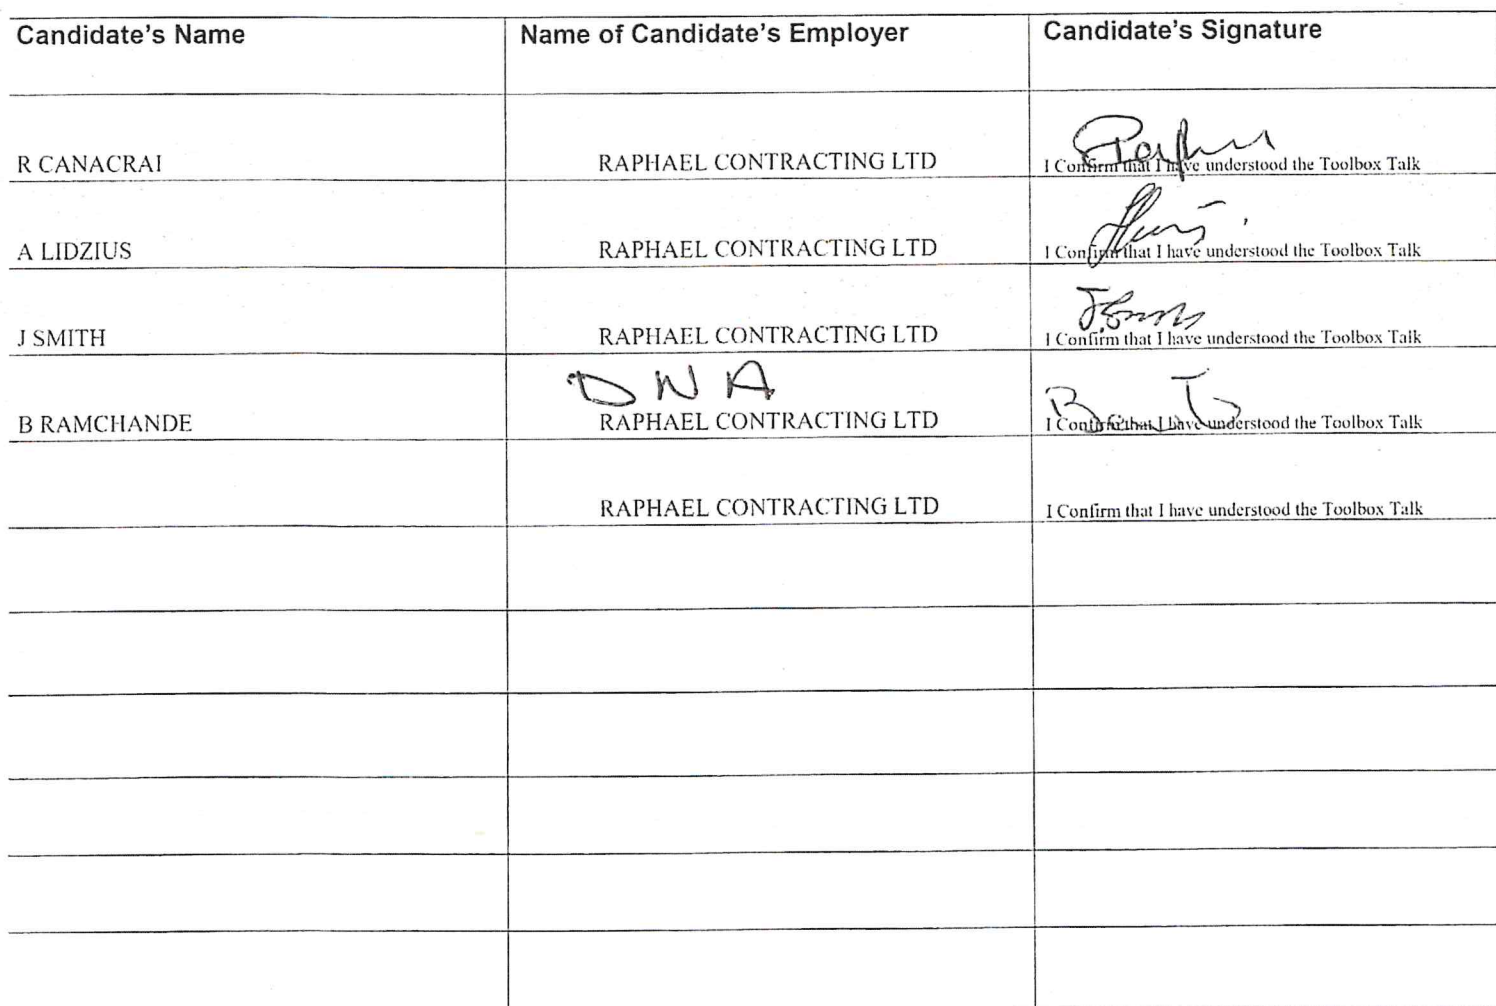 Candidate's Name Name of Candidate's Employer Candidate's Signature
R CANACRAI RAPHAEL CONTRACTING LTD I Confirm that I have understood the Toolbox Talk
A LIDZIUS RAPHAEL CONTRACTING LTD I Confirm that I have understood the Toolbox Talk
J SMITH RAPHAEL CONTRACTING LTD I Confirm that I have understood the Toolbox Talk
DNA
B RAMCHANDE RAPHAEL CONTRACTING LTD I Confirm that I have understood the Toolbox Talk
RAPHAEL CONTRACTING LTD I Confirm that I have understood the Toolbox Talk